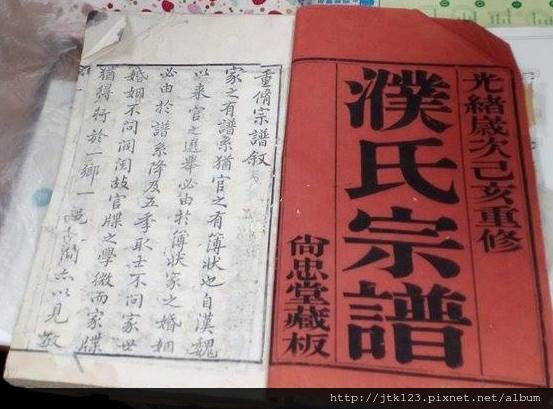 光緒歲次己亥重修
濮氏宗譜
尚忠堂藏板
重脩宗譜叙
家之有譜系猶官之有簿狀也自漢魏
以来官之選舉必由於簿狀家之婚姻
必由於譜系降及五季取士不問家世
婚姻不問閥閱故官牒之學微而家牒
猶得行於一鄉一邑亦以見敬
http://jtk123.pixnet.net/album